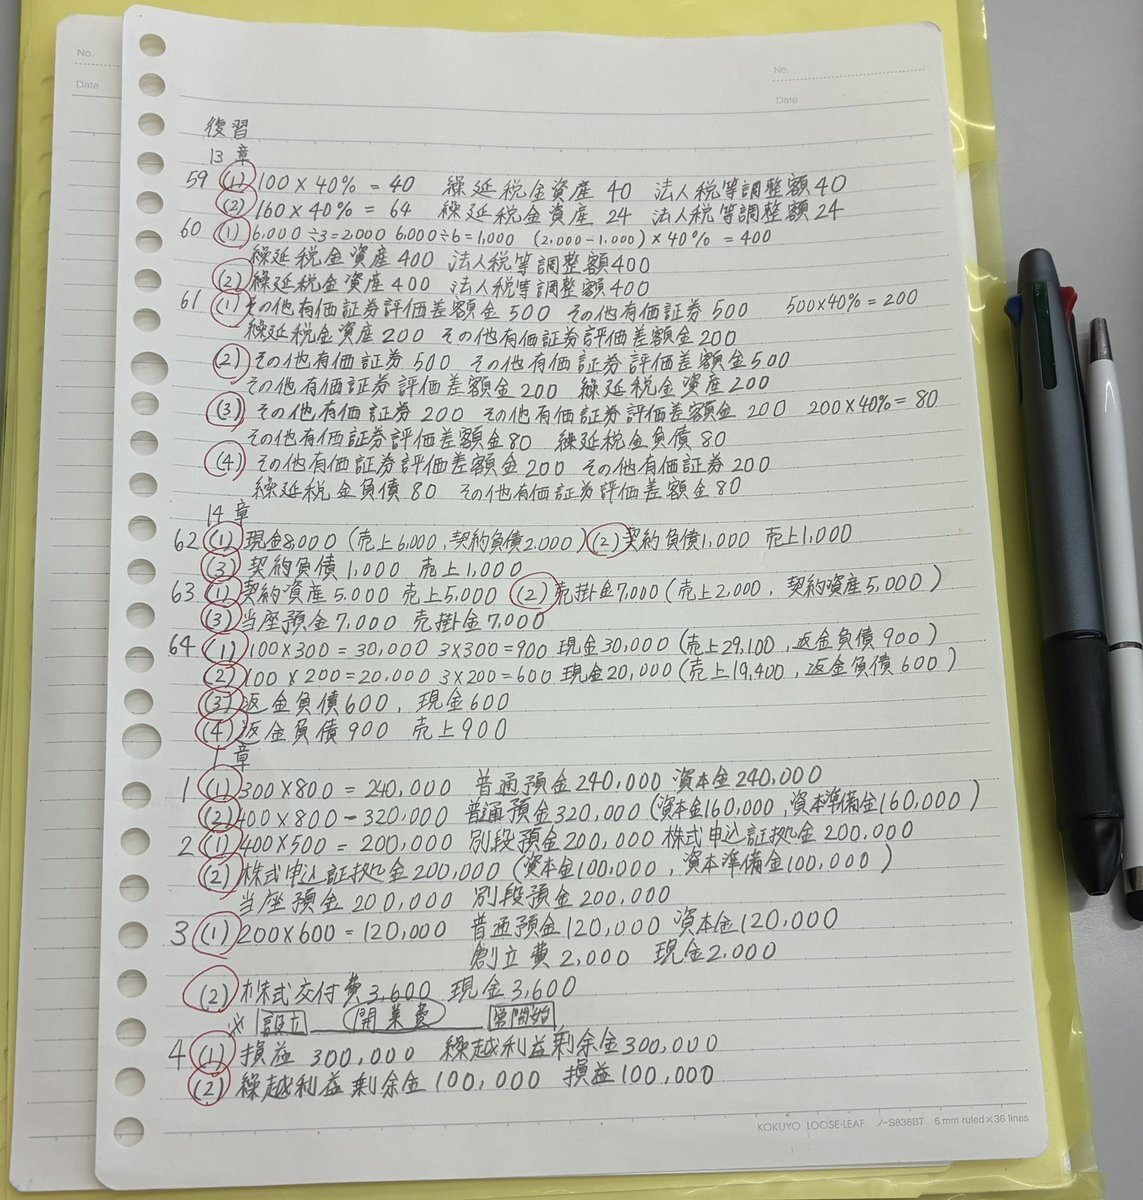 No
Date
No
Date
復習
13章
59 (1) 100×40% = 40 繰延税金資産 40 法人税等調整額 40
(2) 160×40% = 64 繰延税金資産 24 法人税等調整額 24
60 (1) 6,000÷3=2,000 6,000÷6=1,000 (2,000-1,000)×40% = 400
繰延税金資産 400 法人税等調整額400
(2) 繰延税金資産 400 法人税等調整額 400
61 (1) その他有価証券評価差額金 500 その他有価証券 500 500×40% = 200
繰延税金資産 200 その他有価証券評価差額金 200
(2) その他有価証券 500 その他有価証券評価差額金500
その他有価証券評価差額金 200 繰延税金資産 200
(3) その他有価証券 200 その他有価証券評価差額金 200 200×40% = 80
その他有価証券評価差額金80 繰延税金負債 80
(4) その他有価証券評価差額金 200 その他有価証券 200
繰延税金負債 80 その他有価証券評価差額金 80
14章
62 (1) 現金8,000 (売上6,000, 契約負債2,000) (2) 契約負債1,000 売上1,000
(3) 契約負債 1,000 売上1,000
63 (1) 契約資産 5,000 売上5,000 (2) 売掛金7,000 (売上2,000, 契約資産5,000)
(3) 当座預金 7,000 売掛金 7,000
64 (1) 100×300 = 30,000 3×300=900 現金 30,000 (売上29,100, 返金負債 900)
(2) 100×200=20,000 3×200=600 現金20,000 (売上19,400, 返金負債 600)
(3) 返金負債600, 現金600
(4) 返金負債 900 売上900
1章
1 (1) 300×800 = 240,000 普通預金 240,000 資本金 240,000
(2) 400×800 - 320,000 普通預金320,000 (資本金160,000, 資本準備金160,000)
2 (1) 400×500 = 200,000 別段預金 200,000 株式申込証拠金 200,000
(2) 株式申込証拠金 200,000 (資本金100,000, 資本準備金100,000)
当座預金 200,000 別段預金 200,000
3 (1) 200×600 = 120,000 普通預金120,000 資本金120,000
創立費2,000 現金2,000
(2) 株式交付費3,600 現金3,600
※ 設立 開業費 営開始
4 (1) 損益 300,000 繰越利益剰余金300,000
(2) 繰越利益剰余金100,000 損益100,000
KOKUYO LOOSE-LEAF ノ-S836BT 6 mm ruled×36 lines